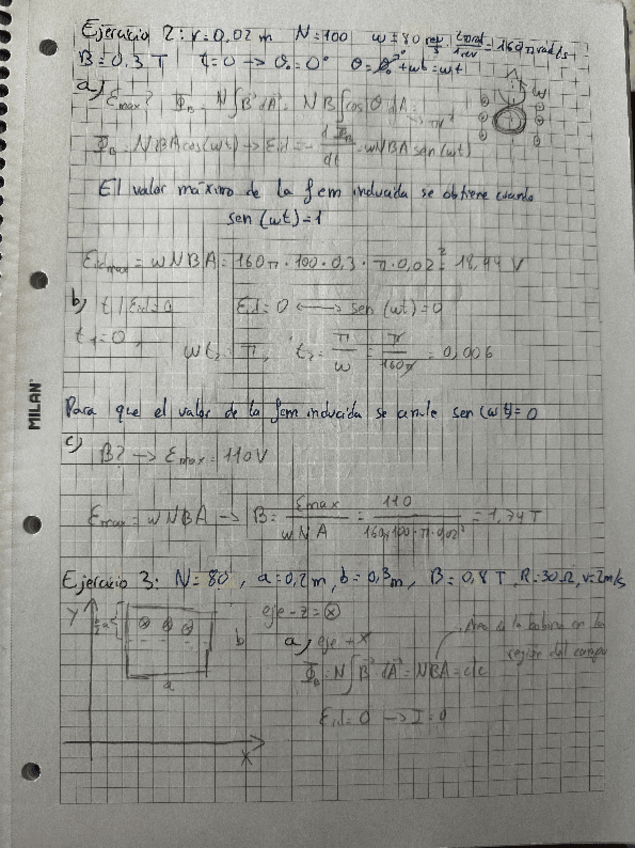 Ejercicio 2: r=0,02 m N=100 ω=80 rev/s · 2π rad/1 rev = 160π rad/s
B=0,3 T t=0 → θ₀=0° θ=θ₀+ωt=ωt
a) ε max? Φ_B = N∫B⃗ dA⃗ = NB∫cos θ dA
Φ_B = NBA cos(ωt) → Eid = -dΦ_B/dt = ωNBA sen(ωt)
El valor máximo de la fem inducida se obtiene cuando
sen (ωt)=1
Eid max = ωNBA = 160π·100·0,3·π·0,02² = 18,94 V
b) t | Eid=0 Eid=0 ⟷ sen (ωt)=0
t₁=0, ωt₂=π, t₂= π/ω = π/160π = 0,006
MILAN
Para que el valor de la fem inducida se anule sen(ωt)=0
c) B? → ε max = 110V
ε max = ωNBA → B= εmax/ωNA = 110/160π·100·π·0,02² = 1,74 T
Ejercicio 3: N=80, a=0,2m, b=0,3m, B=0,8 T, R=30Ω, v=2m/s
Y b eje-z=⊗
a a) eje +X Area de la bobina en la
región del campo
Φ_B = N∫B⃗ dA⃗ = NBA = cte
Eid=0 → I=0
X